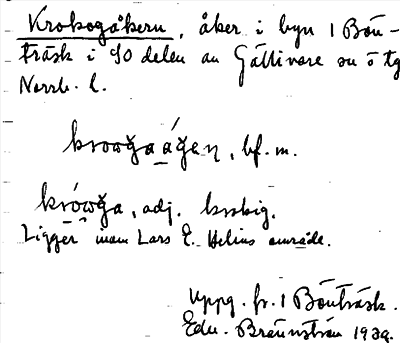 Krokogåkern, åker i byn 1 Bön-
träsk i SO delen av Gällivare sn o tg
Norrb. l.
bf. m.
adj. krokig.
Ligger inom Lars E. Helins område.
Uppg. fr. 1 Bönträsk.
Edv. Brännström